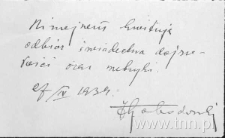 Niniejszem kwituję
odbiór świadectwa dojrza-
łości oraz metryki
IX 1934.
www.tnn.pl